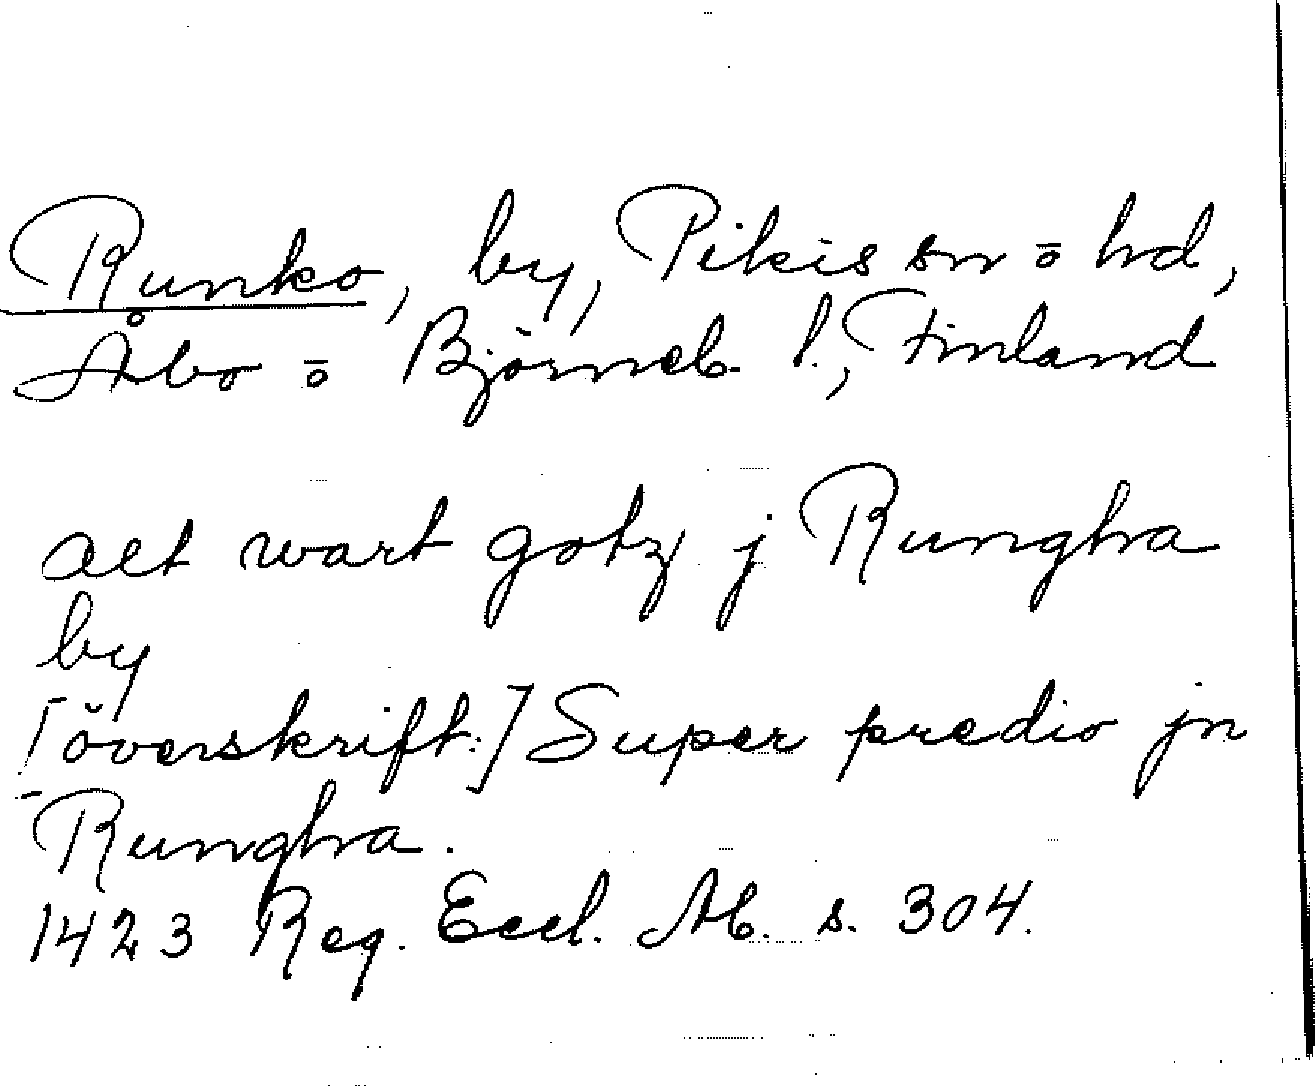 Runko, by, Pikis sn o hd,
Åbo o Björneb. l., Finland
alt wart gotz j Rungha
by
[överskrift:] Super predio jn
Rungha.
1423 Reg. Eccl. Ab. s. 304.